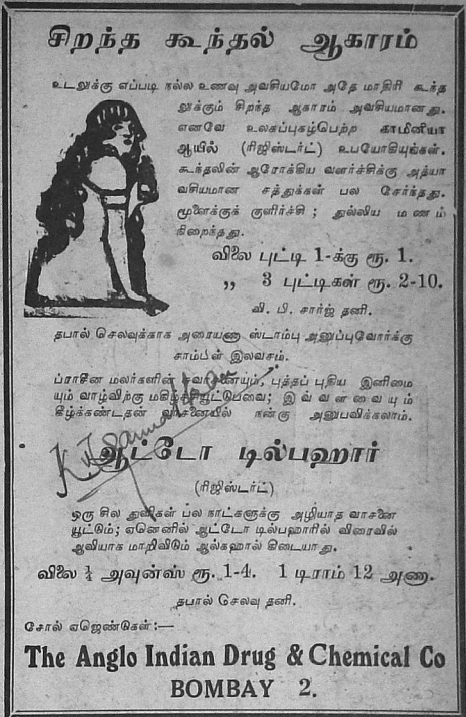 சிறந்த கூந்தல் ஆகாரம்
உடலுக்கு எப்படி நல்ல உணவு அவசியமோ அதே மாதிரி கூந்த
லுக்கும் சிறந்த ஆகாரம் அவசியமானது.
எனவே உலகப்புகழ்பெற்ற காமினியா
ஆயில் (ரிஜிஸ்டர்ட்) உபயோகியுங்கள்.
கூந்தலின் ஆரோக்கிய வளர்ச்சிக்கு அத்யா
வசியமான சத்துக்கள் பல சேர்ந்தது.
மூளைக்குக் குளிர்ச்சி ; துல்லிய மணம்
நிறைந்தது.
விலை புட்டி 1-க்கு ரூ. 1.
,, 3 புட்டிகள் ரூ. 2-10.
வி. பி. சார்ஜ் தனி.
தபால் செலவுக்காக அரையணா ஸ்டாம்பு அனுப்புவோர்க்கு
சாம்பிள் இலவசம்.
ப்ராசீன மலர்களின் சுவாசனையும், புத்தப் புதிய இனிமை
யும் வாழ்விற்கு மகிழ்ச்சியூட்டுபவை; இவ்வளவையும்
கீழ்க்கண்டதன் வாசனையில் நன்கு அனுபவிக்கலாம்.
ஆட்டோ டில்பஹார்
(ரிஜிஸ்டர்ட்)
ஒரு சில துளிகள் பல நாட்களுக்கு அழியாத வாசனை
யூட்டும்; ஏனெனில் ஆட்டோ டில்பஹாரில் விரைவில்
ஆவியாக மாறிவிடும் ஆல்கஹால் கிடையாது.
விலை ½ அவுன்ஸ் ரூ. 1-4. 1 டிராம் 12 அணா.
தபால் செலவு தனி.
சோல் ஏஜெண்டுகள்:—
The Anglo Indian Drug & Chemical Co
BOMBAY 2.